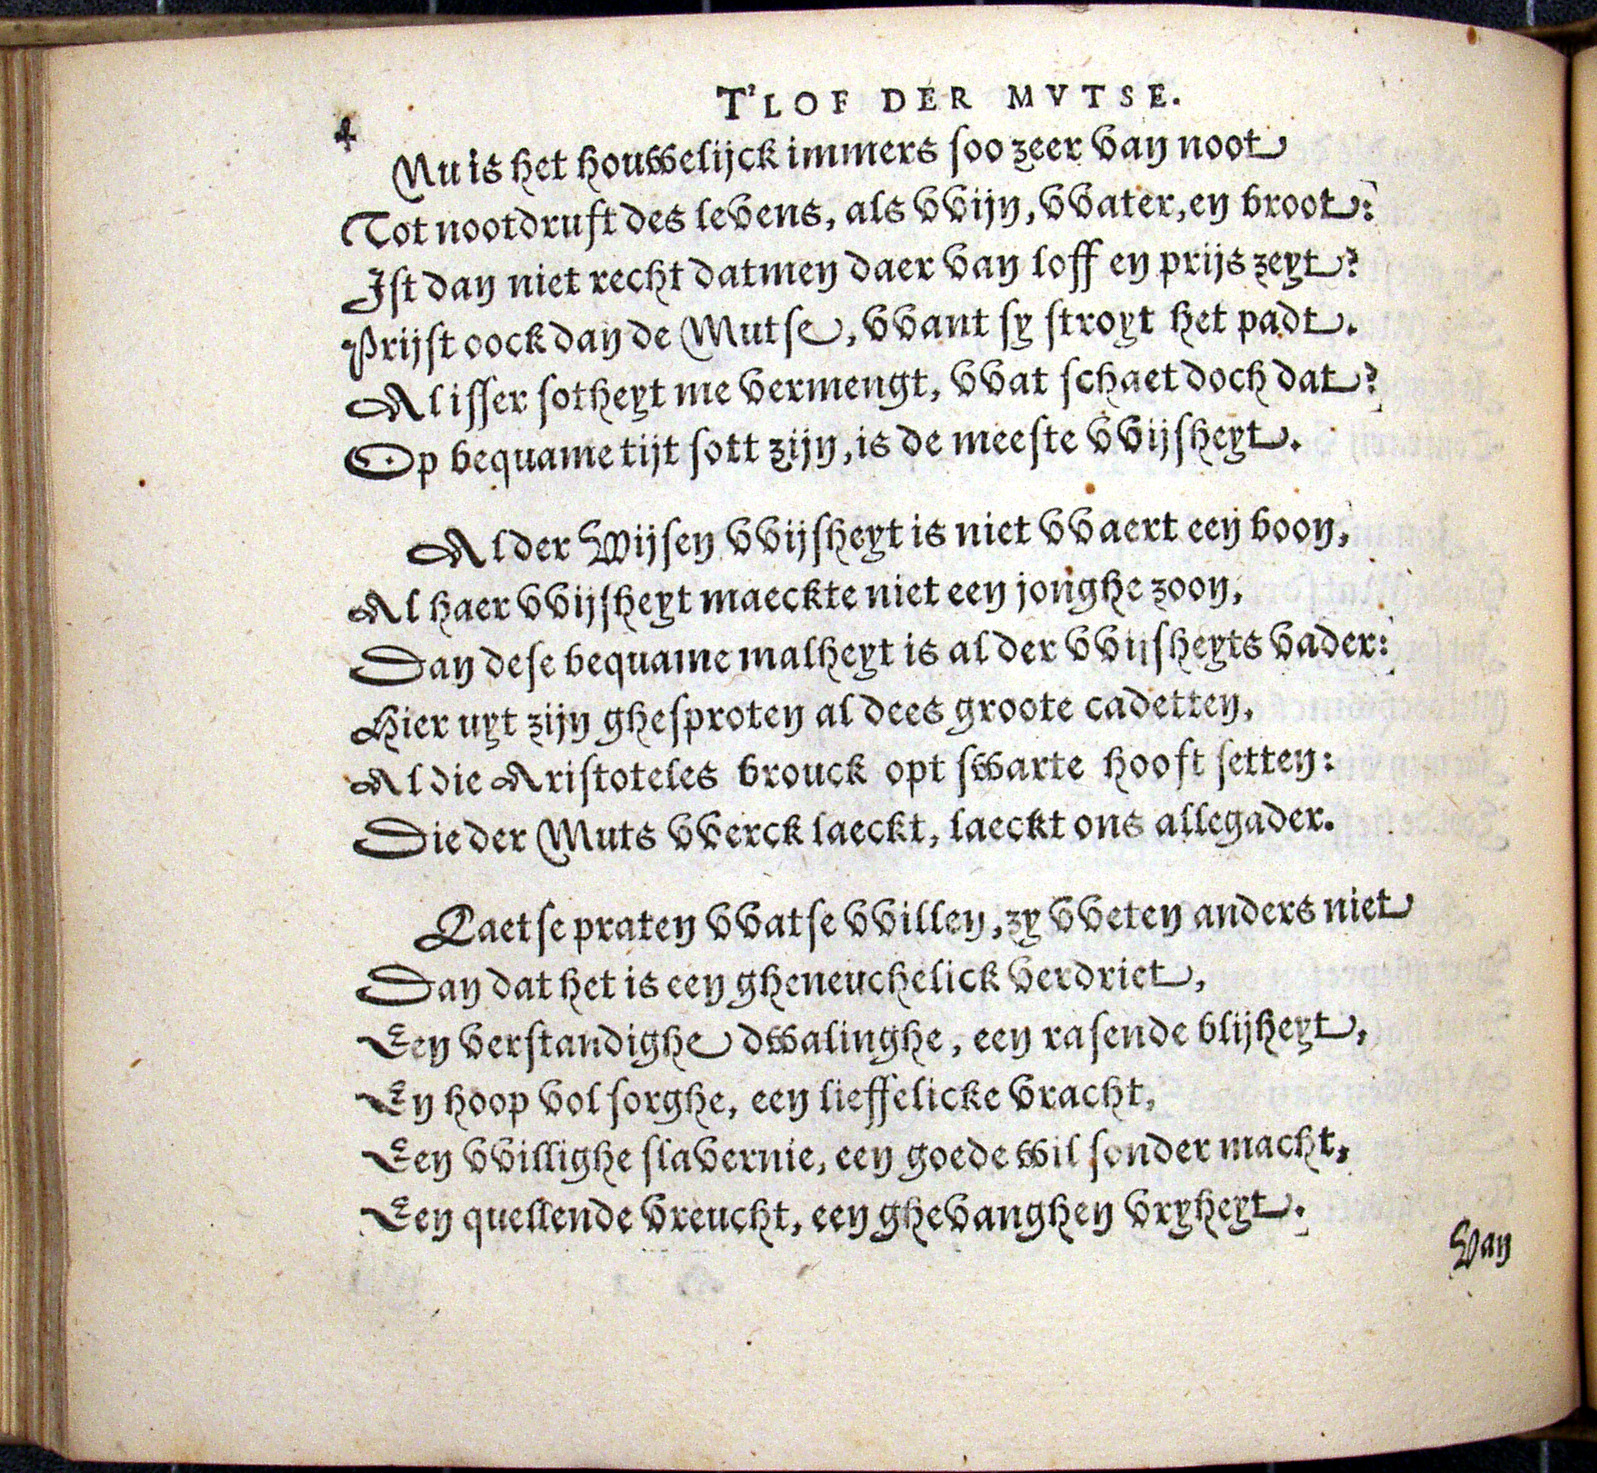 T'LOF DER MVTSE.
4
Nu is het houwelijck immers soo zeer van noot
Tot nootdruft des levens, als vvijn, vvater, en broot:
Ist dan niet recht datmen daer van loff en prijs zeyt?
Prijst oock dan de Mutse, vvant sy stroyt het padt.
Al isser sotheyt me vermengt, vvat schaet doch dat?
Op bequame tijt sott zijn, is de meeste vvijsheyt.
Al der Wijsen vvijsheyt is niet vvaert een boon,
Al haer vvijsheyt maeckte niet een jonghe zoon,
Dan dese bequame malheyt is al der vvijsheyts vader:
Hier uyt zijn ghesproten al dees groote cadetten,
Al die Aristoteles brouck opt swarte hooft setten:
Die der Muts vverck laeckt, laeckt ons allegader.
Laetse praten vvatse vvillen, zy vveten anders niet
Dan dat het is een gheneuchelick verdriet,
Een verstandighe dwalinghe, een rasende blijheyt,
En hoop vol sorghe, een lieffelicke vracht,
Een vvillighe slavernie, een goede wil sonder macht,
Een quellende vreucht, een ghevanghen vryheyt.
Van